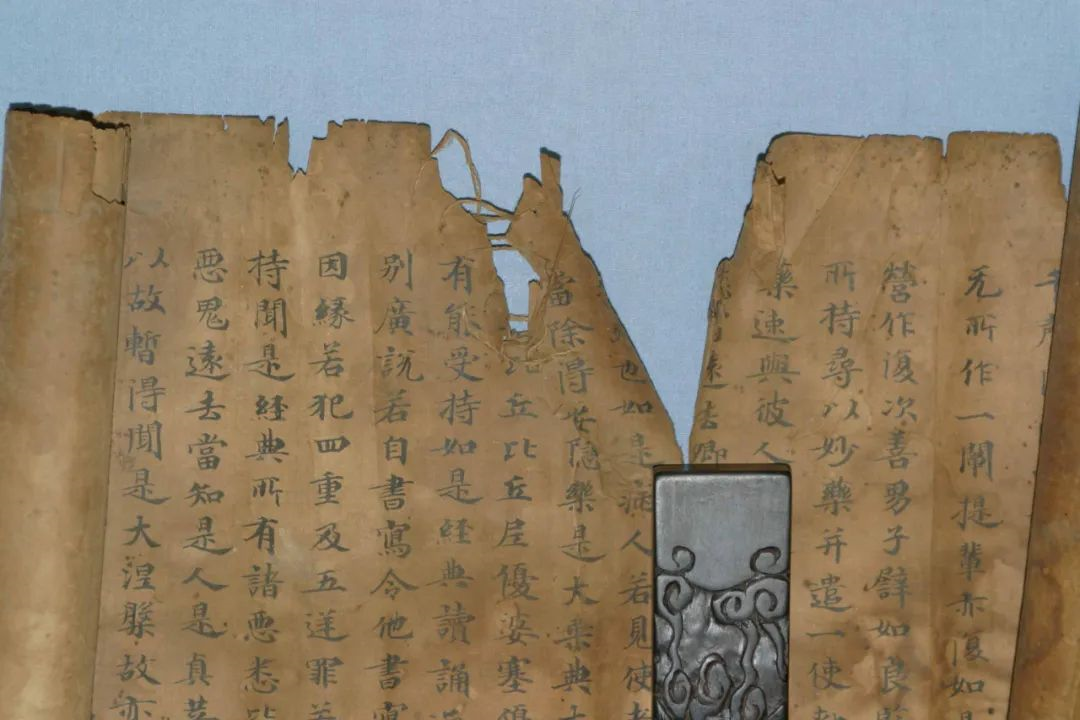 无所作一闡提輩亦復如
營作復次善男子譬如良
所持尋以妙藥并遣一使
藥速與彼人
遠去卿
也如是病人若見使者
當除得安隱樂是大乘典
丘比丘尼優婆塞優
有能受持如是経典讀誦
别廣説若自書寫令他書寫
因縁若犯四重及五逆罪若
持聞是経典所有諸悪悉皆
悪鬼遠去當知是人是真菩
以故暫得聞是大涅槃故亦